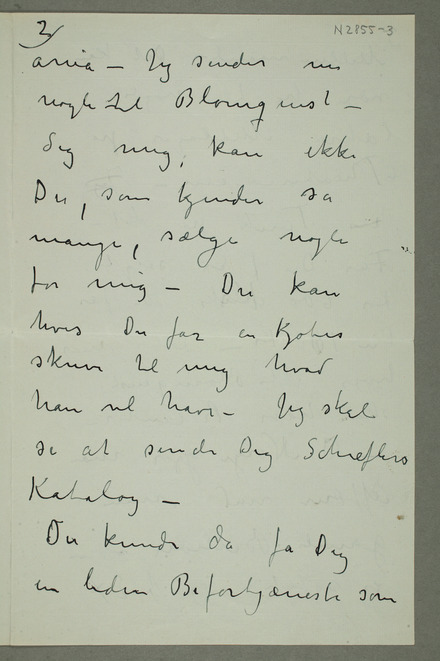 2
N2855-3
ania – Jeg sender nu
nogle til Blomqvist –
Sig mig, kan ikke
Du, som kjender så
mange, sælge nogle
for mig – Du kan
hvis Du får en Kjøber
skrive til mig hvad
han vil have – Jeg skal
se at sende Dig Schieflers
Katalog –
Du kunde da få Dig
en liden Bifortjæneste som